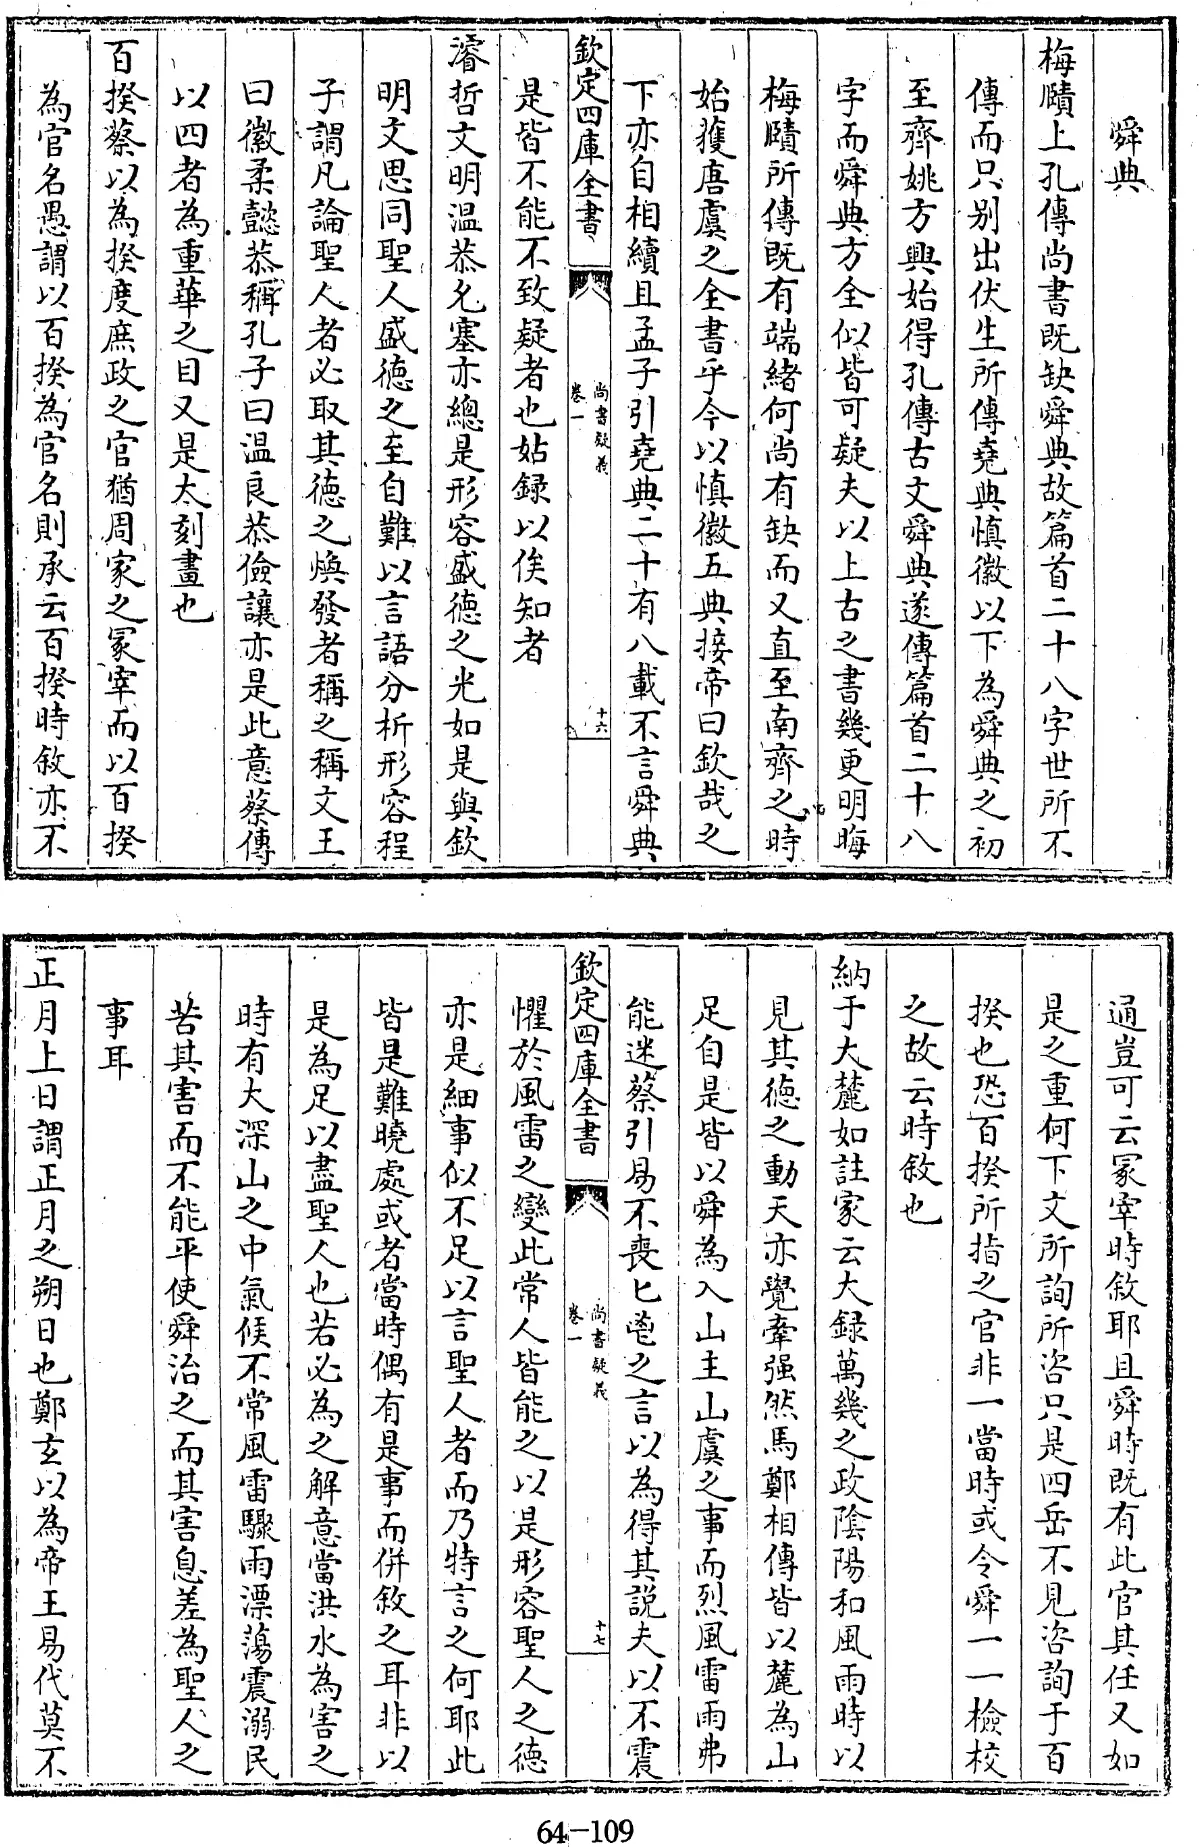 舜典
梅賾上孔傳尚書既缺舜典故篇首二十八字世所不
傳而只别出伏生所傳堯典慎徽以下為舜典之初
至齊姚方興始得孔傳古文舜典遂傳篇首二十八
字而舜典方全似皆可疑夫以上古之書幾更明晦
梅賾所傳既有端緒何尚有缺而又直至南齊之時
始獲唐虞之全書乎今以慎徽五典接帝曰欽哉之
下亦自相續且孟子引堯典二十有八載不言舜典
欽定四庫全書
尚書疑義
卷一
十六
是皆不能不致疑者也姑録以俟知者
濬哲文明温恭允塞亦總是形容盛徳之光如是與欽
明文思同聖人盛徳之至自難以言語分析形容程
子謂凡論聖人者必取其徳之煥發者稱之稱文王
曰徽柔懿恭稱孔子曰温良恭儉讓亦是此意蔡傳
以四者為重華之目又是太刻畫也
百揆蔡以為揆度庶政之官猶周家之冡宰而以百揆
為官名愚謂以百揆為官名則承云百揆時敘亦不
通豈可云冡宰時敘耶且舜時既有此官其任又如
是之重何下文所詢所咨只是四岳不見咨詢于百
揆也恐百揆所指之官非一當時或令舜一一檢校
之故云時敘也
納于大麓如註家云大録萬幾之政陰陽和風雨時以
見其徳之動天亦覺牽强然馬鄭相傳皆以麓為山
足自是皆以舜為入山主山虞之事而烈風雷雨弗
能迷蔡引易不喪匕鬯之言以為得其説夫以不震
欽定四庫全書
尚書疑義
卷一
十七
懼於風雷之變此常人皆能之以是形容聖人之徳
亦是細事似不足以言聖人者而乃特言之何耶此
皆是難曉處或者當時偶有是事而併敘之耳非以
是為足以盡聖人也若必為之解意當洪水為害之
時有大深山之中氣候不常風雷驟雨漂蕩震溺民
苦其害而不能平使舜治之而其害息差為聖人之
事耳
正月上日謂正月之朔日也鄭玄以為帝王易代莫不
64-109